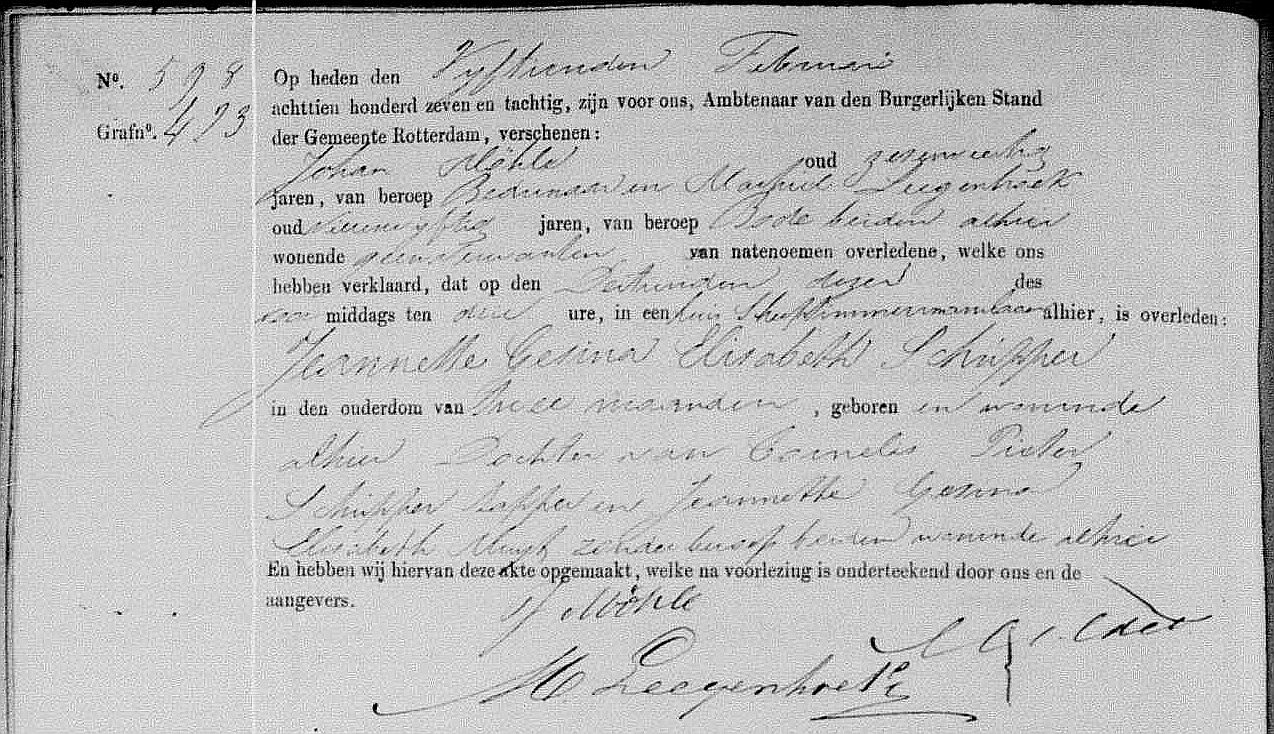 No. 598 Op heden den Vyftienden Februari
achttien honderd zeven en tachtig, zijn voor ons, Ambtenaar van den Burgerlijken Stand
Grafno. 493 der Gemeente Rotterdam, verschenen:
Johan Möhle oud zesenveertig
jaren, van beroep Bedienaar en Machiel Leegenhoek
oud jaren, van beroep Bode beiden alhier
wonende geen verwanten van natenoemen overledene, welke ons
hebben verklaard, dat op den Dertienden dezer des
voor middags ten drie ure, in een huis Scheepstimmermanslaan alhier, is overleden:
Jeannette Gesina Elisabeth Schipper
in den ouderdom van twee maanden, geboren en wonende
alhier Dochter van Cornelis Pieter
Schipper tapper en Jeannette Gesina
Elisabeth zonder beroep beiden wonende alhier
En hebben wij hiervan deze akte opgemaakt, welke na voorlezing is onderteekend door ons en de
aangevers.
J Möhle
M Leegenhoek